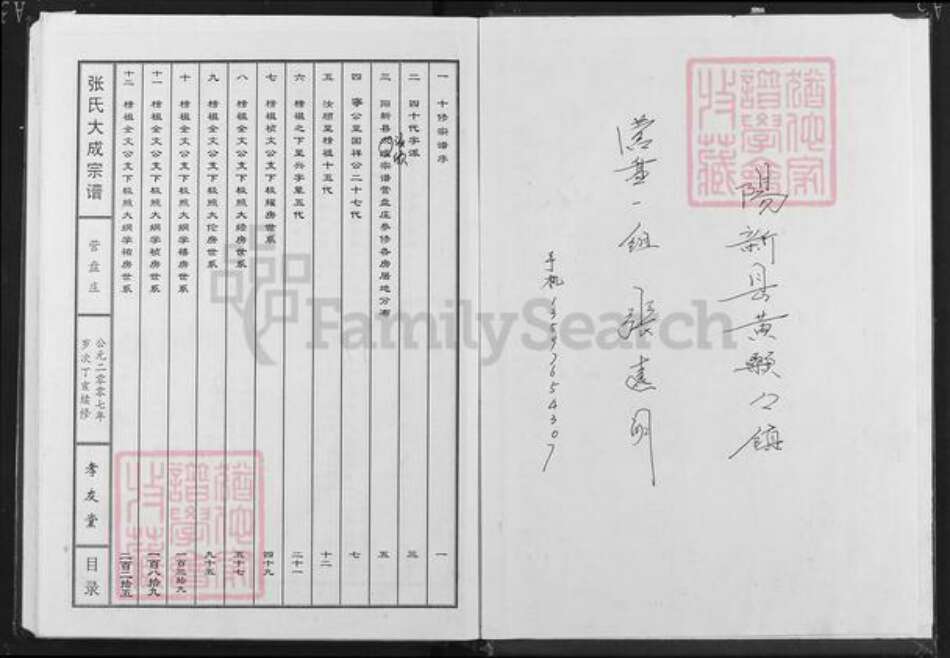 陽新县黄颡口镇
手机13597654307
張氏大成宗谱
营盘庄
公元二零零七年
岁次丁亥续修
孝友堂
目录
一 十修宗谱序 一
二 四十代字派 三
三 阳新县宗谱营盘庄参修各房居地分布 五
四 寧公至国祥公二十七代 七
五 汝顺至榜祖十五代 十二
六 榜祖之下至兴字辈五代 二十一
七 榜祖桢文公支下极耀房世系 四十九
八 榜祖全文公支下极照大经房世系 五十七
九 榜祖全文公支下极照大伦房世系 九十五
十 榜祖全文公支下极照大纲学禧房世系 一百三拾九
十一 榜祖全文公支下极照大纲学祯房世系 一百八拾九
十二 榜祖全文公支下极照大纲学祐房世系 二百二拾五
FamilySearch